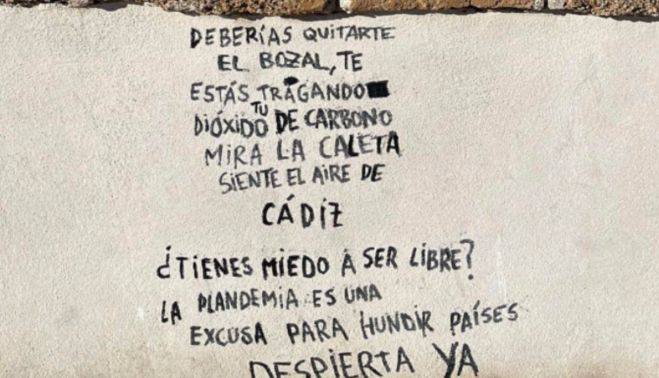 DEBERÍAS QUITARTE
EL BOZAL, TE
ESTÁS TRAGANDO
TU
DIÓXIDO DE CARBONO
MIRA LA CALETA
SIENTE EL AIRE DE
CÁDIZ
¿TIENES MIEDO A SER LIBRE?
LA PLANDEMIA ES UNA
EXCUSA PARA HUNDIR PAÍSES
DESPIERTA YA